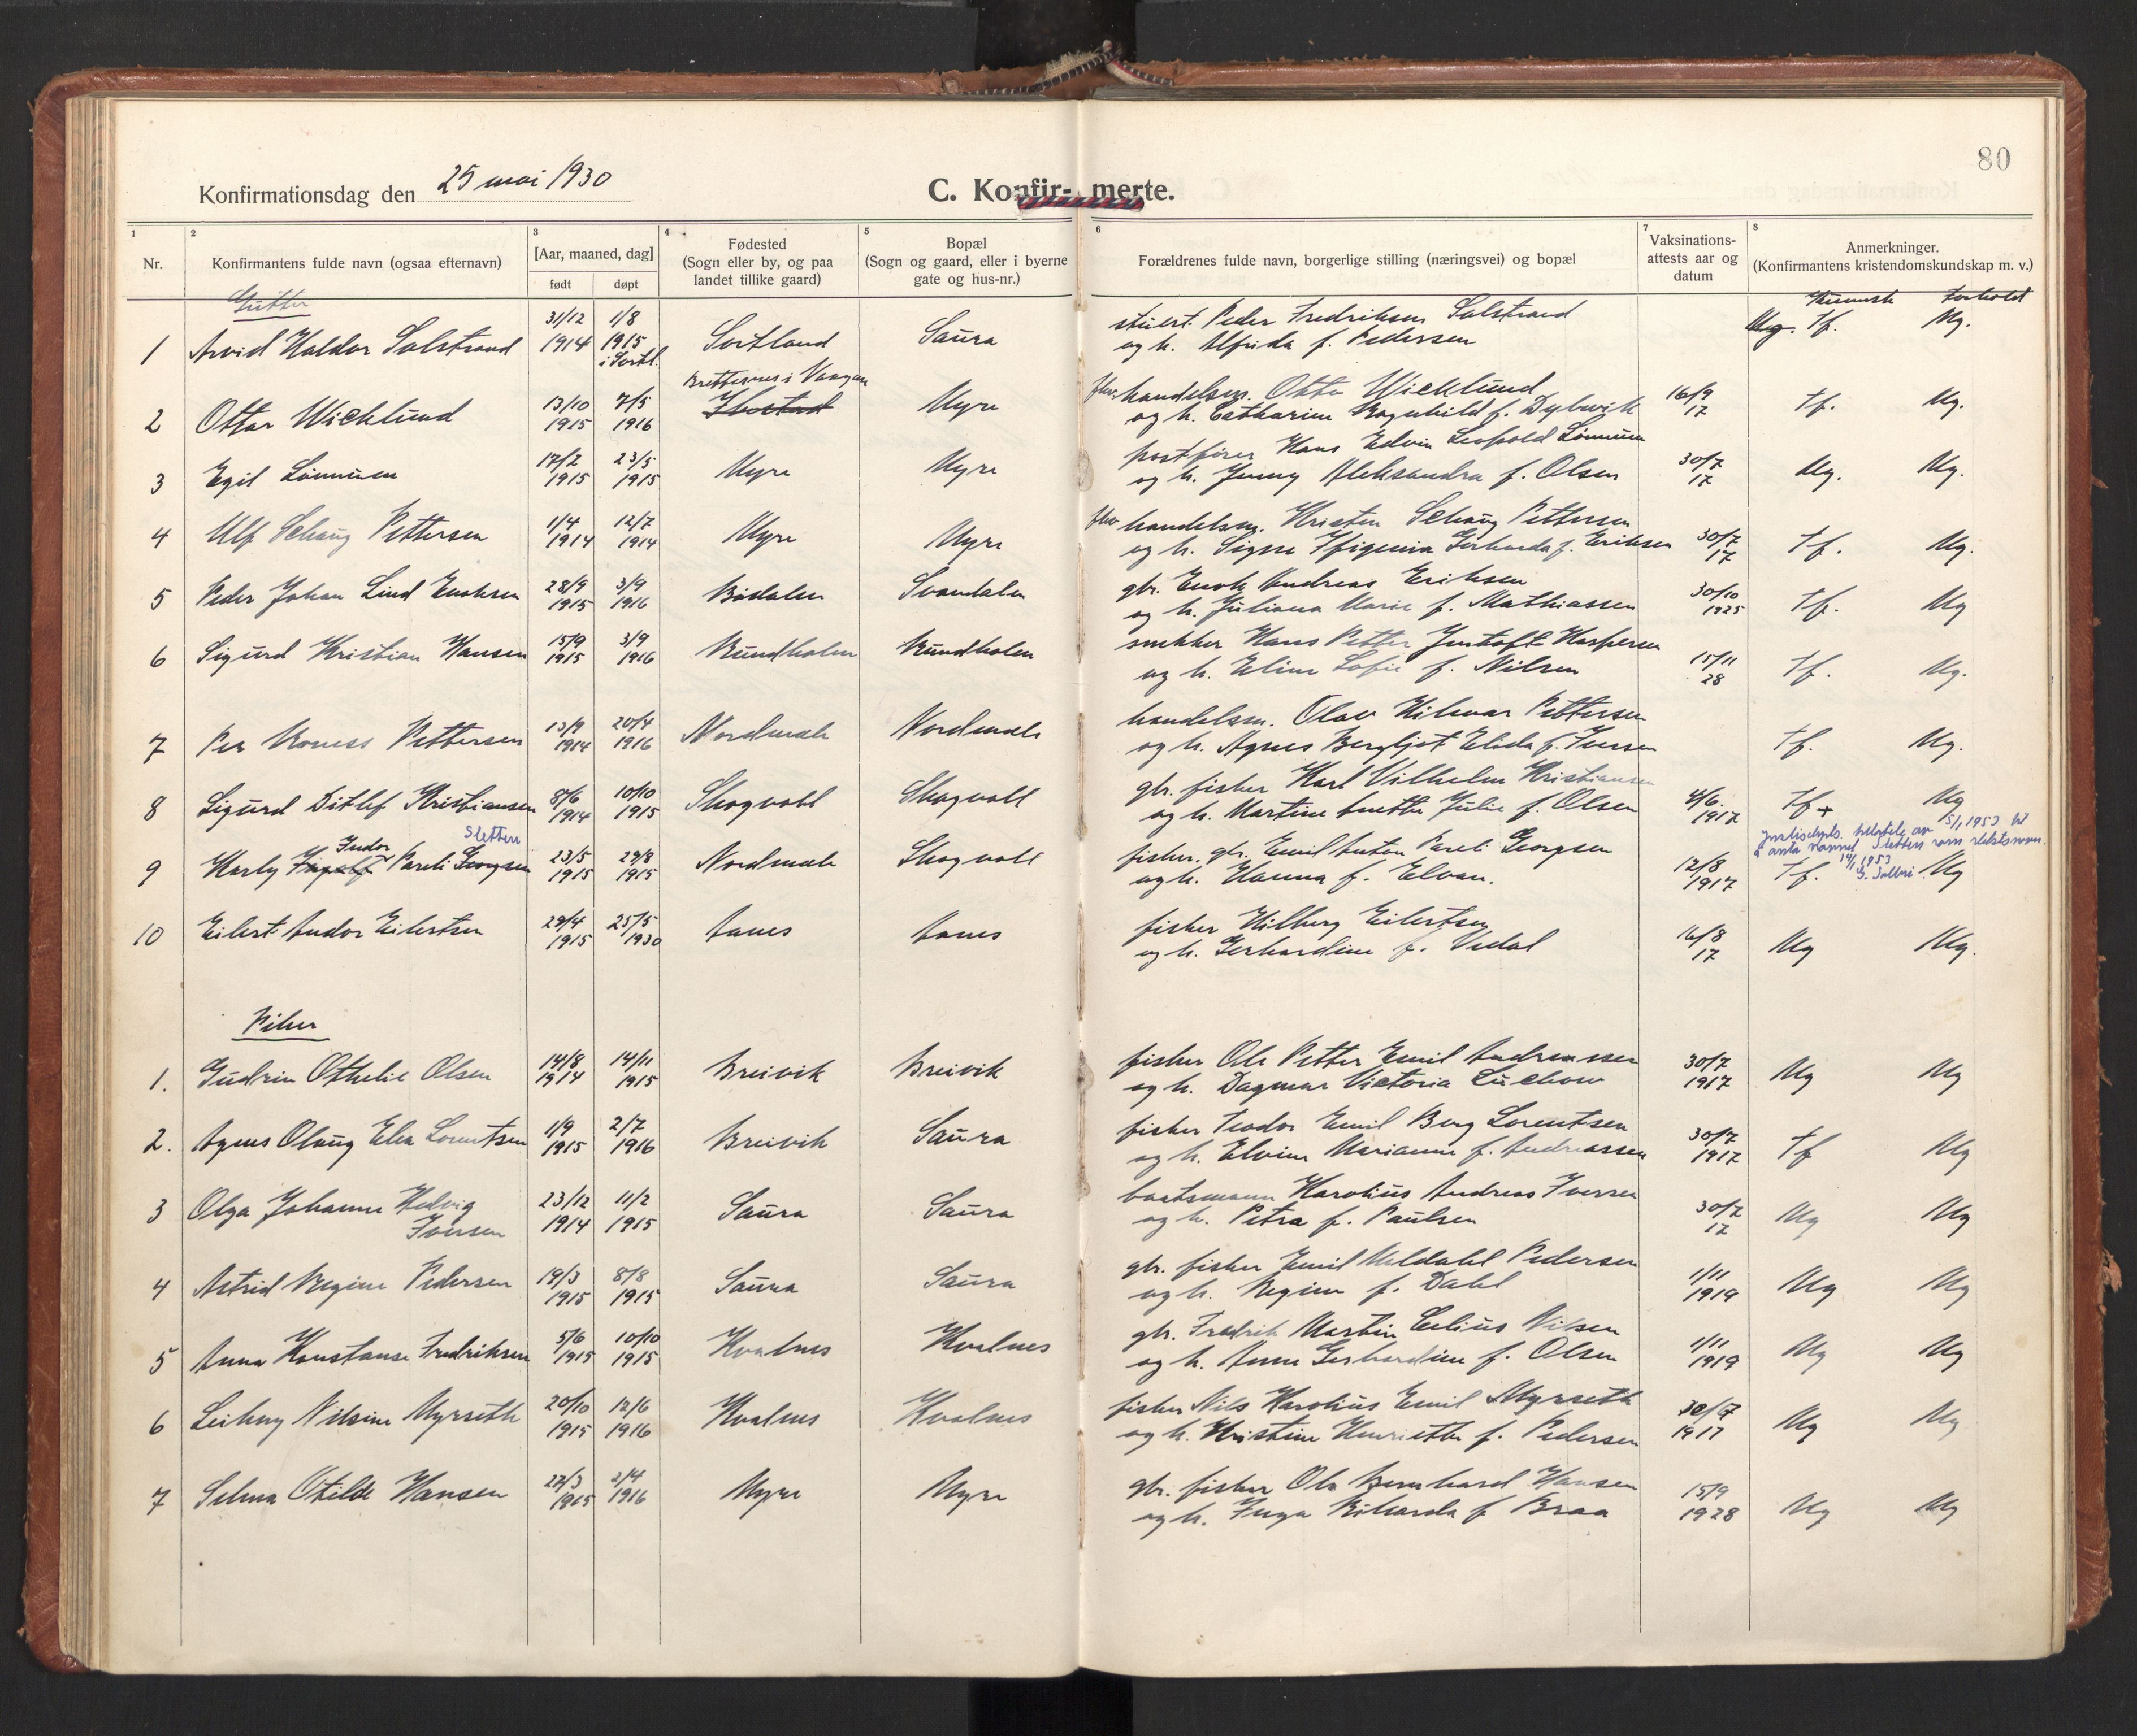 80
Konfirmationsdag den 25 mai 1930
C. Konfir- merte.
1 2 3 4 5 6 7 8
Nr.
Konfirmantens fulde navn (ogsaa efternavn)
[Aar, maaned, dag]
født døpt
Fødested
(Sogn eller by, og paa
landet tillike gaard)
Bopæl
(Sogn og gaard, eller i byerne
gate og hus-nr.)
Forældrenes fulde navn, borgerlige stilling (næringsvei) og bopæl
Vaksinations-
attests aar og
datum
Anmerkninger.
(Konfirmantens kristendomskundskap m. v.)
Gutter
Kunnsk forhold
31/12 1/8 stuert. Peder Fredriksen Solstrand
1 Arvid Haldor Solstrand 1914 1915 Sortland Saura og h. Alfrida f. Pedersen Mg. Tf. Mg.
i Sortl.
Brettesnes i Vaagan
13/10 7/5 handelsm. Otto Wicklund 16/9
2 Ottar Wicklund 1915 1916 Ibestad Myre og h. Catharine Ragnhild f. Dybwik 17 Tf. Mg.
17/2 23/5 postfører Hans Edvin Leopold Lønnuen 30/7
3 Egil Lønnuen 1915 1915 Myre Myre og h. Jenny Aleksandra f. Olsen 17 Mg. Mg.
1/4 12/7 handelsm. Kristen Schaug Pettersen 30/7
4 Ulf Schaug Pettersen 1914 1914 Myre Myre og h. Signe Ifigenia Gerharda f. Eriksen 17 Tf. Mg.
28/9 3/9 gbr. Enok Andreas Eriksen 30/10
5 Peder Johan Lind Enoksen 1915 1916 Bødalen Svandalen og h. Juliana Marie f. Mathiassen 1925 Tf. Mg
15/9 3/9 snekker Hans Petter Justoft Kaspersen 15/11
6 Sigurd Kristian Hansen 1915 1916 Rundholen Rundholen og h. Eline Sofie f. Nilsen 28 Tf. Mg.
13/9 20/4 handelsm. Olav Hilmar Pettersen
7 Per Roness Pettersen 1914 1916 Nordmele Nordmele og h. Agnes Bergljot Elida f. Iversen Tf. Mg.
8/6 10/10 gbr. fisker Karl Vilhelm Kristiansen 4/6
8 Sigurd Ditlef Kristiansen 1914 1915 Skogvoll Skogvoll og h. Martine Anette Julie f. Olsen 1917 Tf+ Mg
Sletten Justisdepts. tillatele av 5/1 1953 til
å anta navnet Sletten som slektsnavn.
Indor 23/5 29/8 fisker. gbr. Emil Anton Pareli Georgsen 12/8 14/1 1953
9 Harly Pareli Georgsen 1915 1915 Nordmele Skogvoll og h. Hanna f. Elvan. 1917 Tf. Mg
29/4 25/5 fisker Hilberg Eilertsen 16/8
10 Eilert Andor Eilertsen 1915 1930 Aanes Aanes og h. Gerhardine f. Vedal 17 Mg Mg.
Piker
14/8 14/11 fisker Ole Petter Emil Andreassen 30/7
1. Gudrun Othelie Olsen 1914 1915 Breivik Breivik og h. Dagmar Victoria Luchow 1917 Mg Mg
1/9 2/7 fisker Teodor Emil Berg Lorentsen 30/7
2. Agnes Olaug Elea Lorentsen 1915 1916 Breivik Saura og h. Elvine Marianne f. Andreassen 1917 Tf Mg
23/12 11/2 baatsmann Karolius Andreas Iversen 30/7
3 Olga Johanne Hedvig 1914 1915 Saura Saura og h. Petra f. Paulsen 17 Mg Mg
Iversen
19/3 8/8 gbr. fisker Emil Meldahl Pedersen 1/11
4 Astrid Regine Pedersen 1915 1915 Saura Saura og h. Regine f. Dahl 1919 Mg Mg
5/6 10/10 gbr. Fredrik Martin Edius Nilsen 1/11
5 Anna Konstanse Fredriksen 1915 1915 Kvalnes Kvalnes og h. Anne Gerhardine f. Olsen 1919 Mg Mg
20/10 12/6 fisker Nils Karolius Emil Myrseth 30/7
6 Leikny Nilsine Myrseth 1915 1916 Kvalnes Kvalnes og h. Kristine Henriette f. Pedersen 1917 Mg Mg
22/3 2/4 gbr. fisker Ole Bernhard Hansen 15/9
7 Selma Otilde Hansen 1915 1916 Myre Myre og h. Inga Rikarda f Braa 1928 Mg Mg